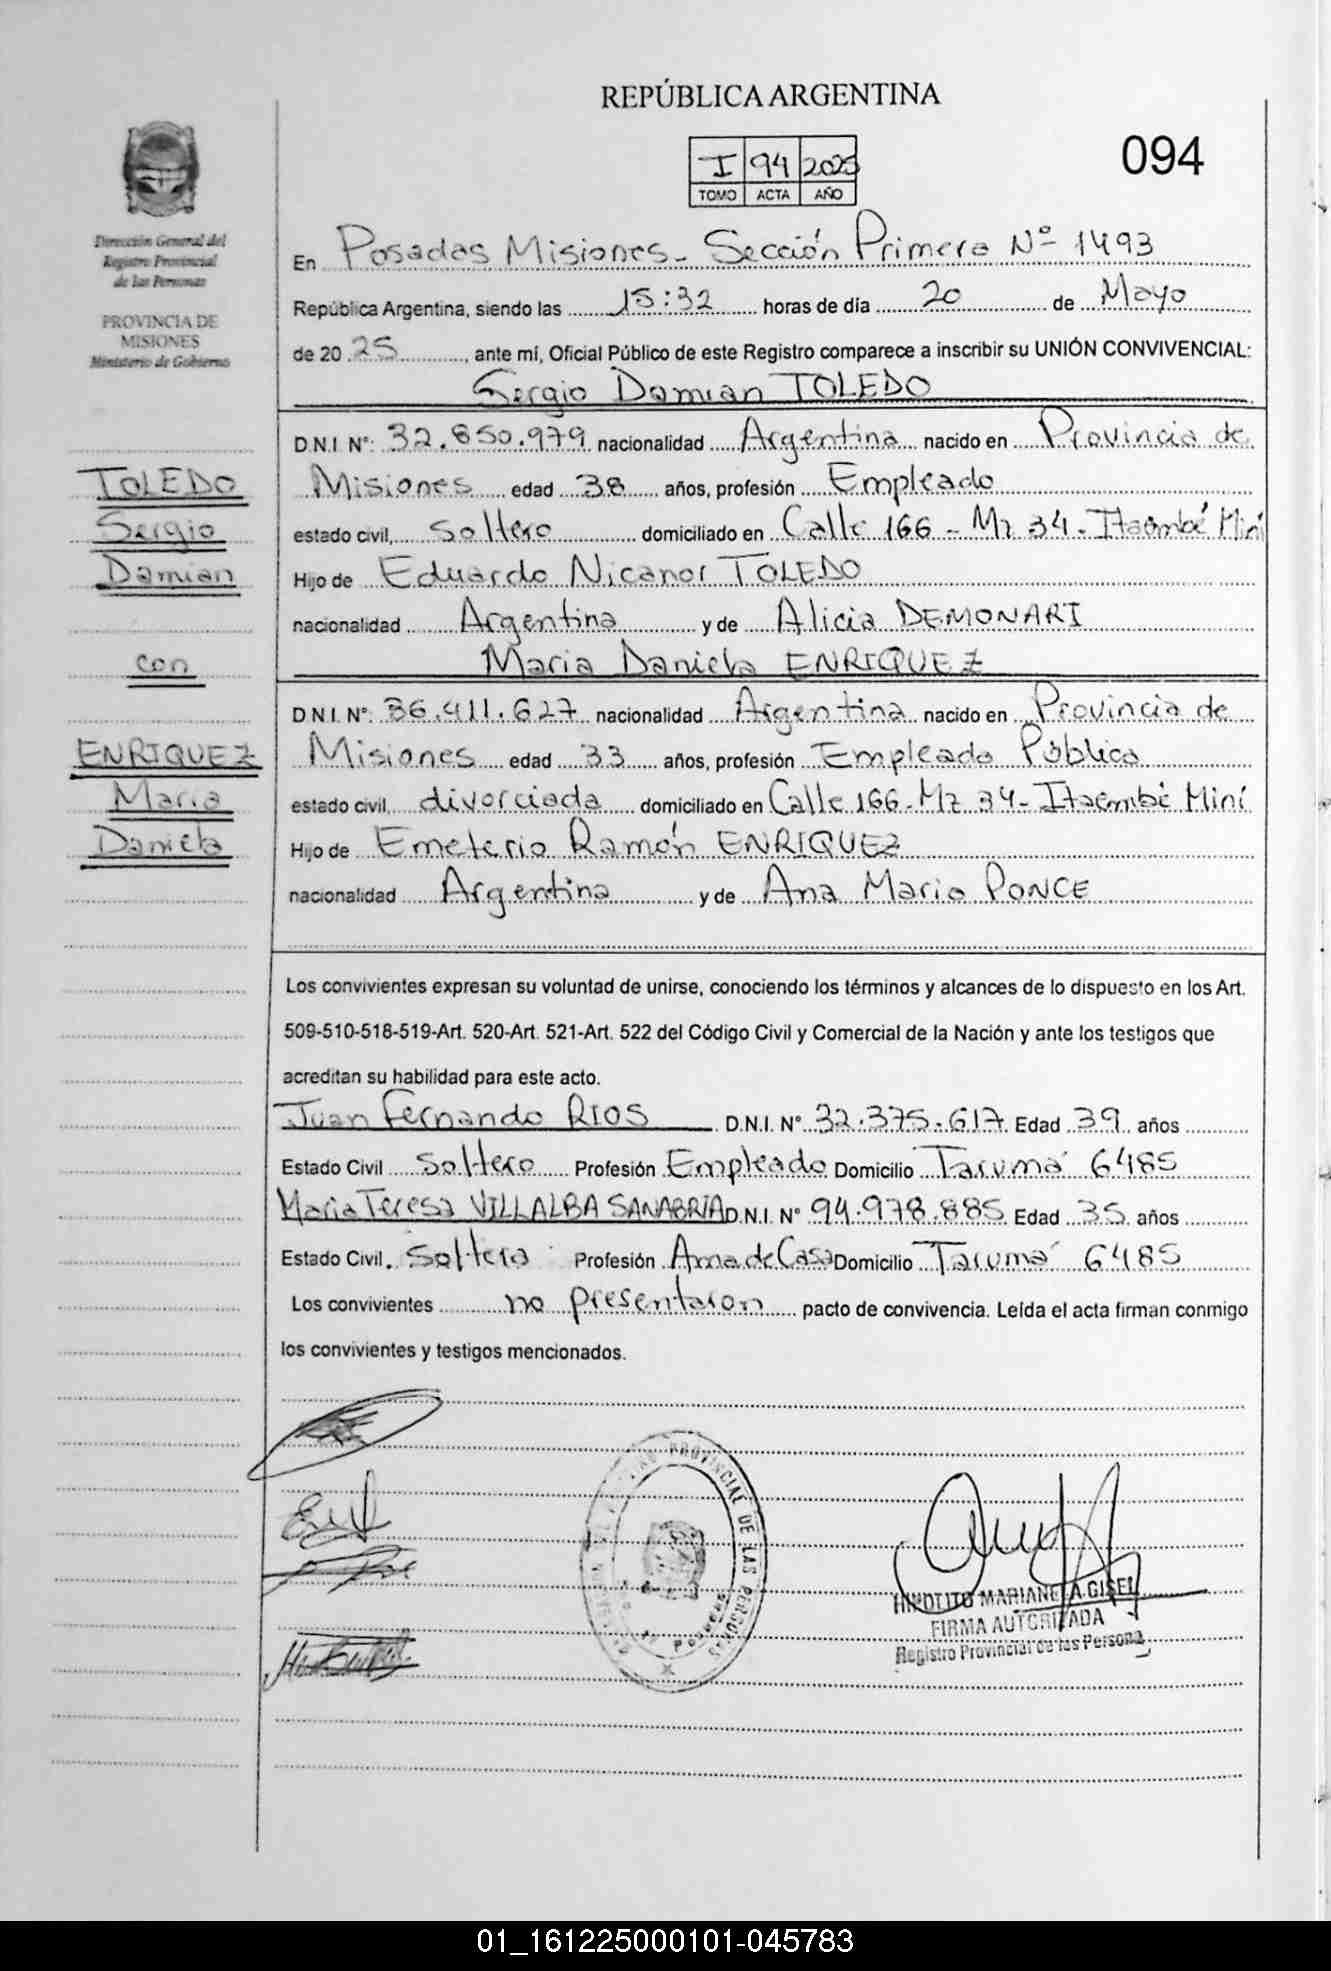 REPÚBLICA ARGENTINA
094
I 94 2025
TOMO ACTA AÑO
Dirección General del
Registro Provincial
de las Personas
PROVINCIA DE
MISIONES
Ministerio de Gobierno
En Posadas Misiones - Sección Primera Nº 1493
República Argentina, siendo las 15:32 horas de día 20 de Mayo
de 2025, ante mí, Oficial Público de este Registro comparece a inscribir su UNIÓN CONVIVENCIAL:
Sergio Damian TOLEDO
D.N.I. N°: 32.850.979 nacionalidad Argentina nacido en Provincia de
Misiones edad 38 años, profesión Empleado
estado civil, soltero domiciliado en Calle 166 - Mz 34 - Itaembé Miní
Hijo de Eduardo Nicanor TOLEDO
nacionalidad Argentina y de Alicia DEMONARI
TOLEDO
Sergio
Damian
con
ENRIQUEZ
Maria
Daniela
Maria Daniela ENRIQUEZ
D.N.I. N°: 36.411.627 nacionalidad Argentina nacido en Provincia de
Misiones edad 33 años, profesión Empleada Pública
estado civil, divorciada domiciliado en Calle 166 - Mz 34 - Itaembé Miní
Hijo de Emeterio Ramón ENRIQUEZ
nacionalidad Argentina y de Ana Maria PONCE
Los convivientes expresan su voluntad de unirse, conociendo los términos y alcances de lo dispuesto en los Art.
509-510-518-519-Art. 520-Art. 521-Art. 522 del Código Civil y Comercial de la Nación y ante los testigos que
acreditan su habilidad para este acto.
Juan Fernando RIOS D.N.I. N° 32.375.617 Edad 39 años
Estado Civil soltero Profesión Empleado Domicilio Tacuma 6485
Maria Teresa VILLALBA SANABRIA D.N.I. N° 94.978.885 Edad 35 años
Estado Civil. Soltera Profesión Ama de Casa Domicilio Tacuma 6485
Los convivientes no presentaron pacto de convivencia. Leída el acta firman conmigo
los convivientes y testigos mencionados.
PROVINCIAL DE LAS PERSONAS
Posadas
HIPOLITO MARIANELA GISEL
FIRMA AUTORIZADA
Registro Provincial de las Personas
01_161225000101-045783